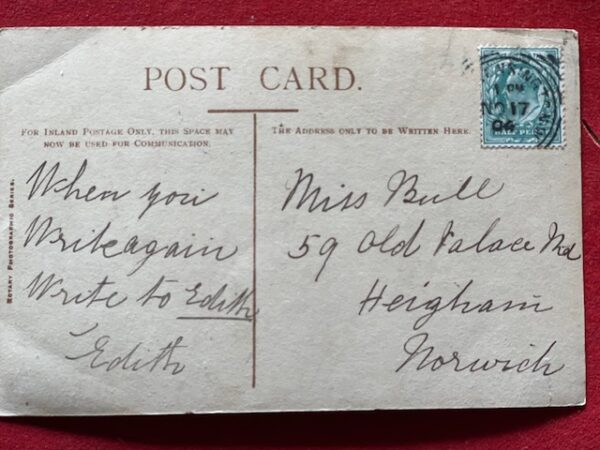 POST CARD.
FOR INLAND POSTAGE ONLY, THIS SPACE MAY
NOW BE USED FOR COMMUNICATION.
THE ADDRESS ONLY TO BE WRITTEN HERE.
ROTARY PHOTOGRAPHIC SERIES.
When you
Write again
Write to Edith
Edith
Miss Bull
59 Old Palace Rd
Heigham
Norwich
PM
NO 17
04
HALF PEN